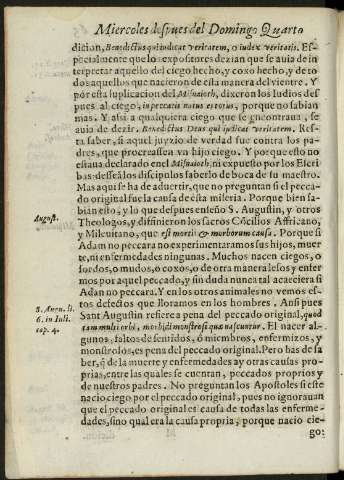 Miercoles despues del Domingo Quarto
dicion, Benedictus qui indicat veritatem, o iudex veritatis. Es-
pecialmente que lo expositores dezian que se auia de in-
terpretar aquello del ciego hecho, y coxo hecho, y de to-
dos aquellos que nacieron de esta manera del vientre. Y
por esta suplicacion del Misnaioth, dixeron los Iudios des
pues al ciego, in peccatis natus es totus, porque no sabian
mas. Y assi a qualquiera ciego que se encontraua, se
auia de dezir. Benedictus Deus qui iudicat veritatem. Res-
ta saber, si aquel juyzio de verdad fue contra los pa-
dres, que procreassen vn hijo ciego. Y porque esto no
estaua declarado en el Misnaioth, ni expuesto por los Escri
bas: desseā los discipulos saberlo de boca de su maestro.
Mas aqui se ha de aduertir, que no preguntan si el pecca-
do original fue la causa de esta miseria. Porque bien sa-
bian esto, y lo que despues enseño S. Augustin, y otros
August.
Theologos, y difinieron los sacros Cōcilios Affricano,
y Mileuitano, que est mortis & morborum causa. Porque si
Adam no peccara no experimentaramos sus hijos, muer
te, ni enfermedades ningunas. Muchos nacen ciegos, o
sordos, o mudos, o coxos, o de otra manera lesos y enfer
mos por aquel peccado, y sin duda nunca tal acaeciera si
Adan no peccara. Y en los otros animales no vemos es-
tos defectos que lloramos en los hombres. Ansi pues
S. Augu. li.
6. in Iuli.
cap. 4.
Sant Augustin refiere a pena del peccado original, quod
tam multi orbi, morbidi monstrosi quæ nascuntur. El nacer al-
gunos, faltos de sentidos, ó miembros, enfermizos, y
monstrosos, es pena del peccado original. Pero has de sa-
ber, q̄ de la muerte y enfermedades ay otras causas pro-
prias, entre las quales se cuentran, peccados proprios y
de nuestros padres. No preguntan los Apostoles si este
nacio ciego por el peccado original, pues no ignorauan
que el peccado original es causa de todas las enferme-
dades, sino qual era la causa propria, porque nacio cie-
go: